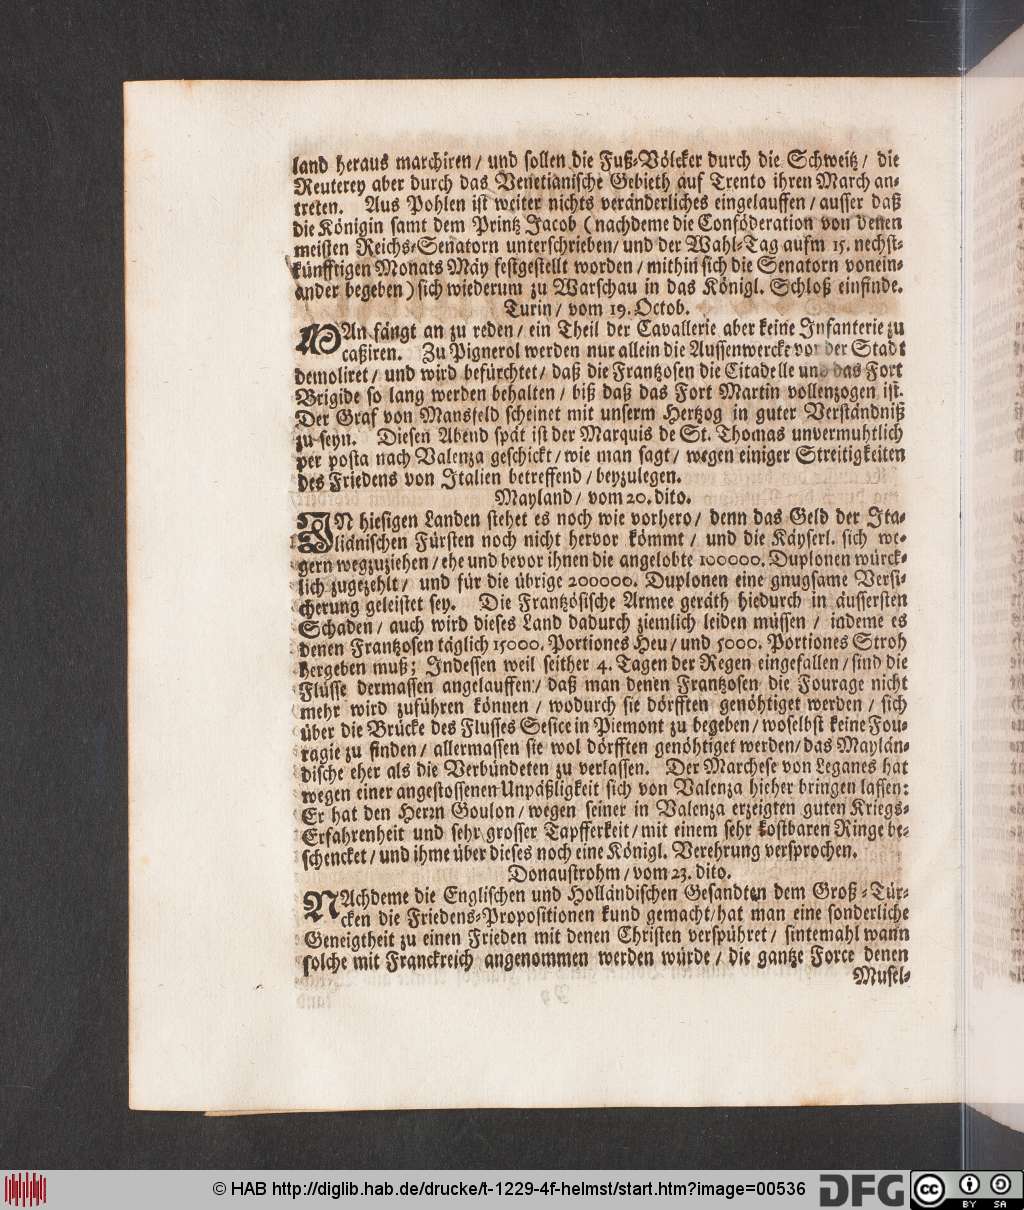 land heraus marchiren / und sollen die Fuß-Völcker durch die Schweitz / die
Reuterey aber durch das Venetianische Gebieth auf Trento ihren March an-
treten. Aus Pohlen ist weiter nichts veränderliches eingelauffen / ausser daß
die Königin samt dem Printz Jacob (nachdeme die Conföderation von denen
meisten Reichs-Senatorn unterschrieben / und der Wahl-Tag aufm 15. nechst-
künfftigen Monats May festgestellt worden / mithin sich die Senatorn vonein-
ander begeben) sich wiederum zu Warschau in das Königl. Schloß einfinde.
Turin / vom 19. Octob.
MAn fängt an zu reden / ein Theil der Cavallerie aber keine Infanterie zu
caßiren. Zu Pignerol werden nur allein die Aussenwercke vor der Stadt
demoliret / und wird befürchtet / daß die Frantzosen die Citadelle und das Fort
Brigide so lang werden behalten / biß daß das Fort Martin vollenzogen ist.
Der Graf von Mansfeld scheinet mit unserm Hertzog in guter Verständniß
zu seyn. Diesen Abend spät ist der Marquis de St. Thomas unvermuhtlich
per posta nach Valenza geschickt / wie man sagt / wegen einiger Streitigkeiten
des Friedens von Italien betreffend / beyzulegen.
Mayland / vom 20. dito.
IN hiesigen Landen stehet es noch wie vorhero / denn das Geld der Ita-
liänischen Fürsten noch nicht hervor kömmt / und die Käyserl. sich we-
gern wegzuziehen / ehe und bevor ihnen die angelobte 100000. Duplonen würck-
lich zugezehlt / und für die übrige 200000. Duplonen eine gnugsame Versi-
cherung geleistet sey. Die Frantzösische Armee geräth hiedurch in äussersten
Schaden / auch wird dieses Land dadurch ziemlich leiden müssen / indeme es
denen Frantzosen täglich 15000. Portiones Heu / und 5000. Portiones Stroh
hergeben muß; Indessen weil seither 4. Tagen der Regen eingefallen / sind die
Flüsse dermassen angelauffen / daß man denen Frantzosen die Fourage nicht
mehr wird zuführen können / wodurch sie dörfften genöhtiget werden / sich
über die Brücke des Flusses Sesice in Piemont zu begeben / woselbst keine Fou-
ragie zu finden / allermassen sie wol dörfften genöhtiget werden / das Maylän-
dische eher als die Verbündeten zu verlassen. Der Marchese von Leganes hat
wegen einer angestossenen Unpäßligkeit sich von Valenza hieher bringen lassen:
Er hat den Herrn Goulon / wegen seiner in Valenza erzeigten guten Kriegs-
Erfahrenheit und sehr grosser Tapfferkeit / mit einem sehr kostbaren Ringe be-
schencket / und ihme über dieses noch eine Königl. Verehrung versprochen.
Donaustrohm / vom 23. dito.
NAchdeme die Englischen und Holländischen Gesandten dem Groß-Tür-
cken die Friedens-Propositionen kund gemacht / hat man eine sonderliche
Geneigtheit zu einen Frieden mit denen Christen verspühret / sintemahl wann
solche mit Franckreich angenommen werden würde / die gantze Force denen
Musel-
© HAB http://diglib.hab.de/drucke/t-1229-4f-helmst/start.htm?image=00536
DFG
cc
BY SA